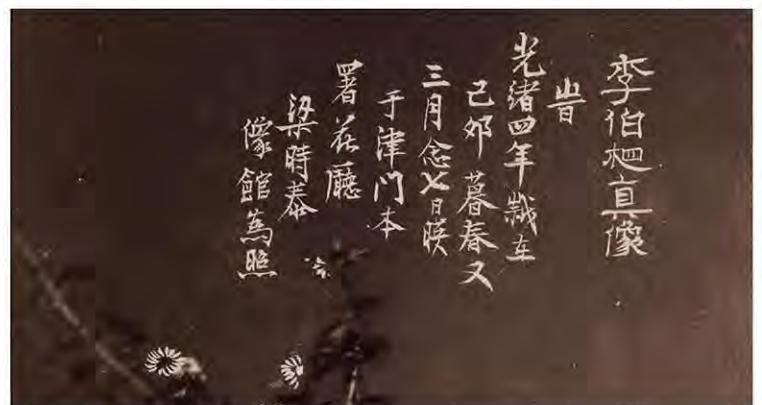 李伯相真像
旹
光緒四年歲在
己卯暮春又
三月念七日暎
于津門本
署花廳
梁時泰
像館為照